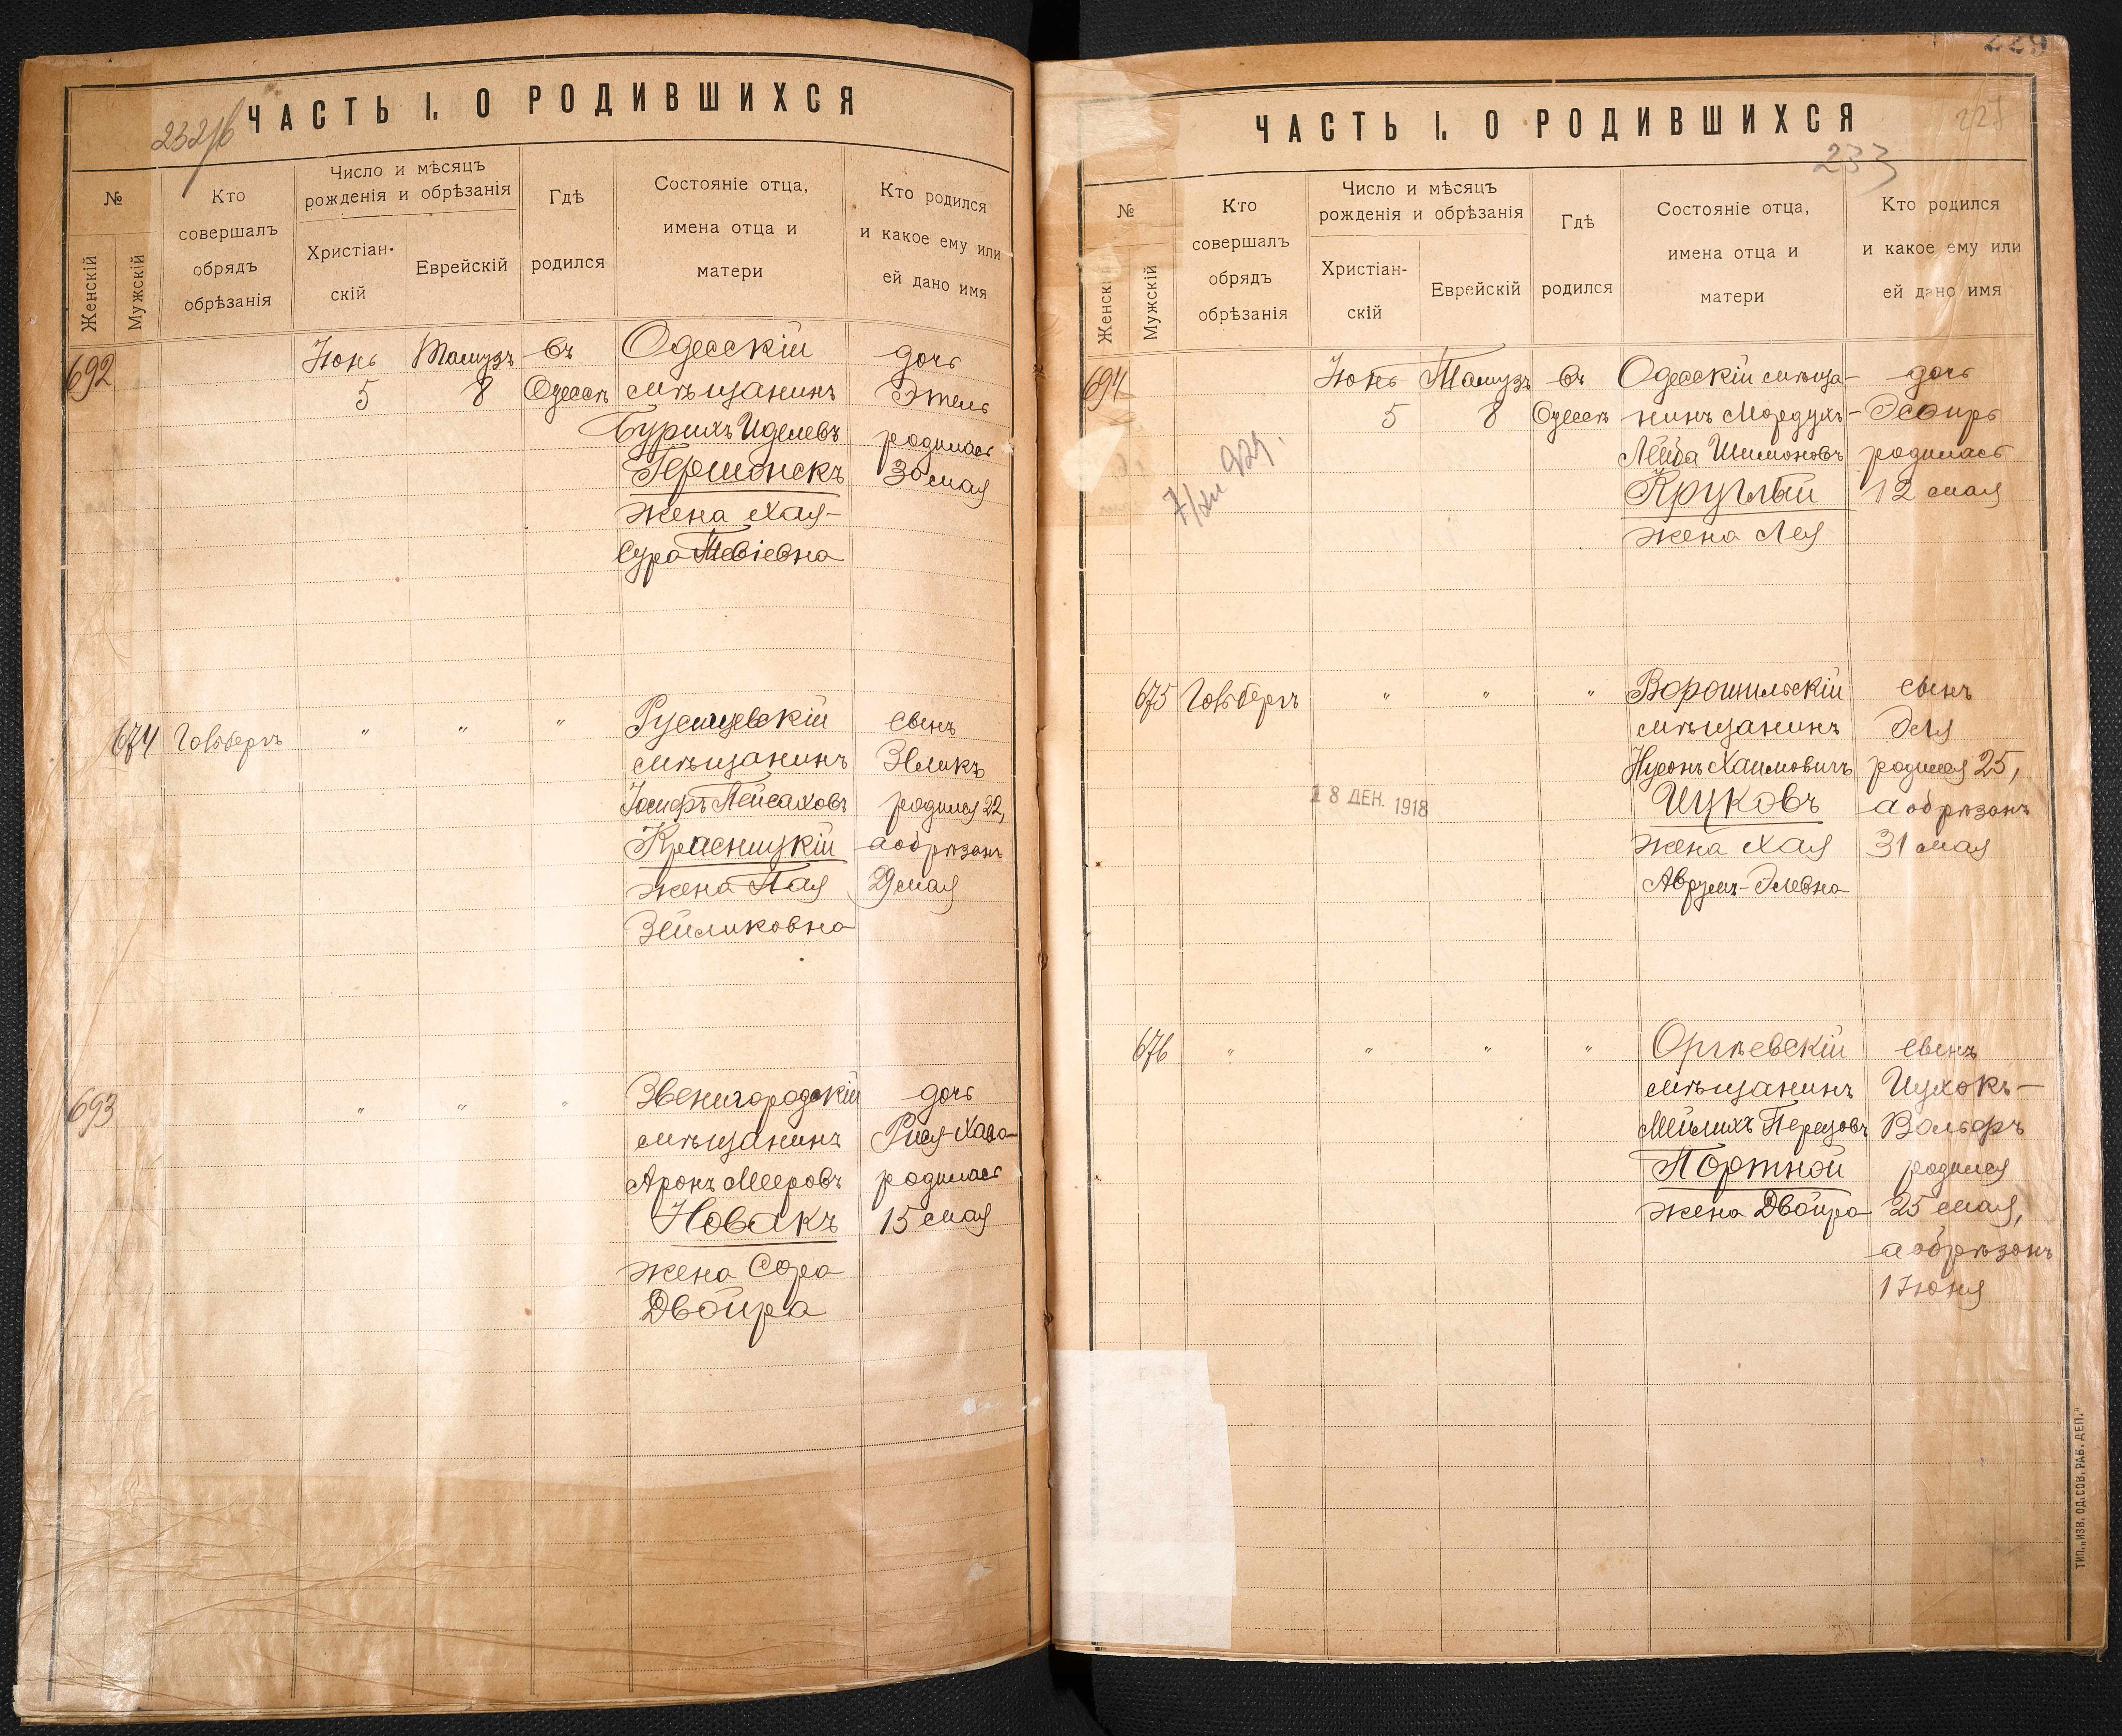 232/б
ЧАСТЬ I. О РОДИВШИХСЯ
№
Женскій
Мужскій
Кто
совершалъ
обрядъ
обрѣзанія
Число и мѣсяцъ
рожденія и обрѣзанія
Христіан-
скій
Еврейскій
Гдѣ
родился
Состояніе отца,
имена отца и
матери
Кто родился
и какое ему или
ей дано имя
692
Іюнь
5
Тамузъ
8
въ
Одессѣ
Одесскій
мѣщанинъ
Бурихъ Иделевъ
жена Хая-
Сура Тевіевна
дочь
Этель
родилась
30 мая
674
Гольбергъ
"
"
"
мѣщанинъ
Іосифъ Пейсаховъ
Красницкій
жена Пая
Зейликовна
сынъ
Зеликъ
родился 22,
а обрѣзанъ
29 мая
693
"
"
"
Звенигородскій
мѣщанинъ
Аронъ Мееровъ
Новакъ
жена Сора
Двойра
дочь
родилась
15 мая
229
ЧАСТЬ I. О РОДИВШИХСЯ
233
№
Женскі
Мужскій
Кто
совершалъ
обрядъ
обрѣзанія
Число и мѣсяцъ
рожденія и обрѣзанія
Христіан-
скій
Еврейскій
Гдѣ
родился
Состояніе отца,
имена отца и
матери
Кто родился
и какое ему или
ей дано имя
694
Іюнь
5
Тамузъ
8
въ
Одессѣ
Одесскій мѣща-
нинъ Мордухъ-
Лейба Шимоновъ
Круглый
жена Лея
дочь
Эсѳирь
родилась
12 мая
675
Гольбергъ
"
"
"
18 ДЕК. 1918
Ворошильскій
мѣщанинъ
Нусонъ Хаимовичъ
Ицковъ
жена Хая
Аврумъ-Элевна
сынъ
Эля
родился 25,
а обрѣзанъ
31 мая
676
"
"
"
"
Оргѣевскій
мѣщанинъ
Мейлихъ Перецовъ
Портной
жена Двойра
сынъ
Ицхокъ-
Вольфъ
родился
25 мая,
а обрѣзанъ
1 Іюня
ТИП. „ИЗВ. ОД. СОВ. РАБ. ДЕП."